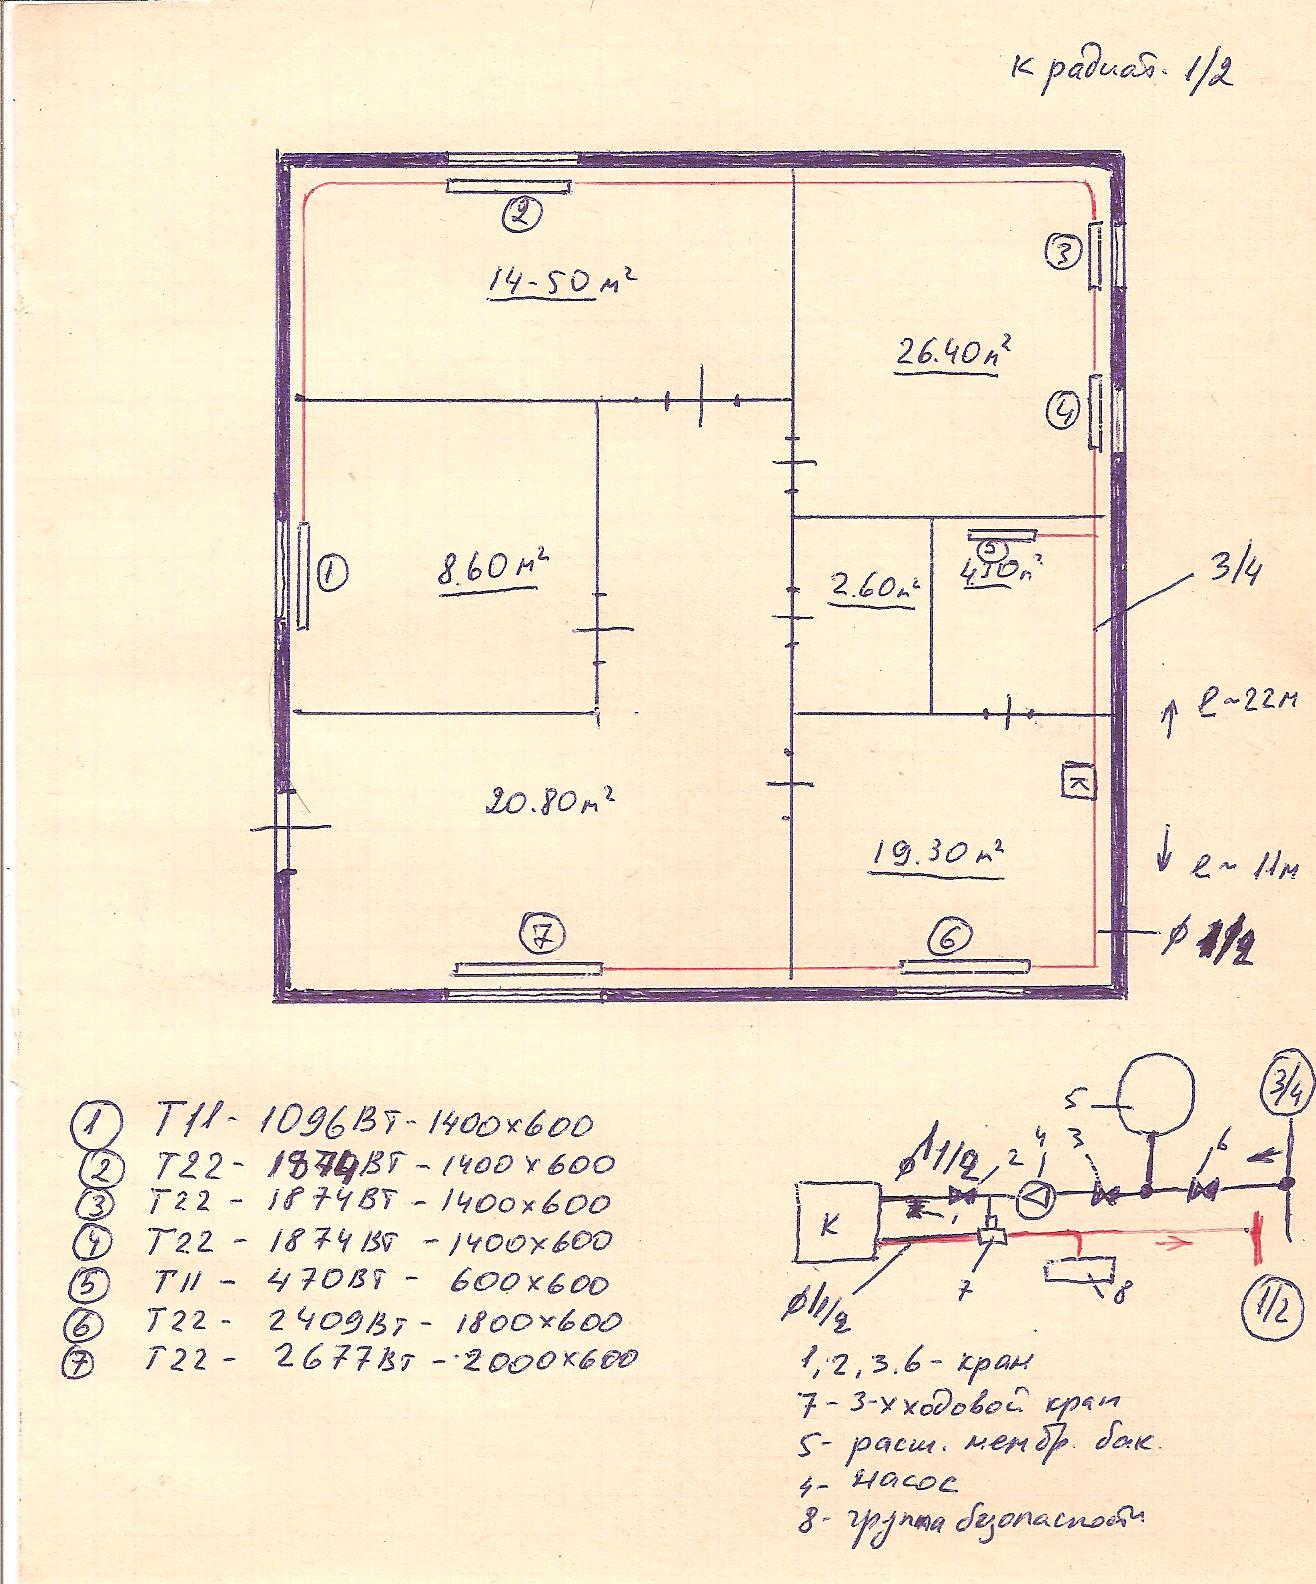 к радиат. 1/2
2
14-50 м²
3
26.40 м²
4
1
8.60 м²
2.60 м²
5
3/4
l ~ 22м
к
20.80 м²
19.30 м²
l ~ 11м
7
6
ϕ 1/2
1 Т11 - 1096Вт - 1400х600
2 Т22 - 1874Вт - 1400х600
3 Т22 - 1874Вт - 1400х600
4 Т22 - 1874Вт - 1400х600
5 Т11 - 470Вт - 600х600
6 Т22 - 2409Вт - 1800х600
7 Т22 - 2677Вт - 2000х600
5
3/4
ϕ11/2 2 4 3 6
К
1
7
8
ϕ11/2
1/2
1,2,3.6 - кран
7 - 3-х ходовой кран
5 - расш. мембр. бак.
4 - насос
8 - группа безопасности